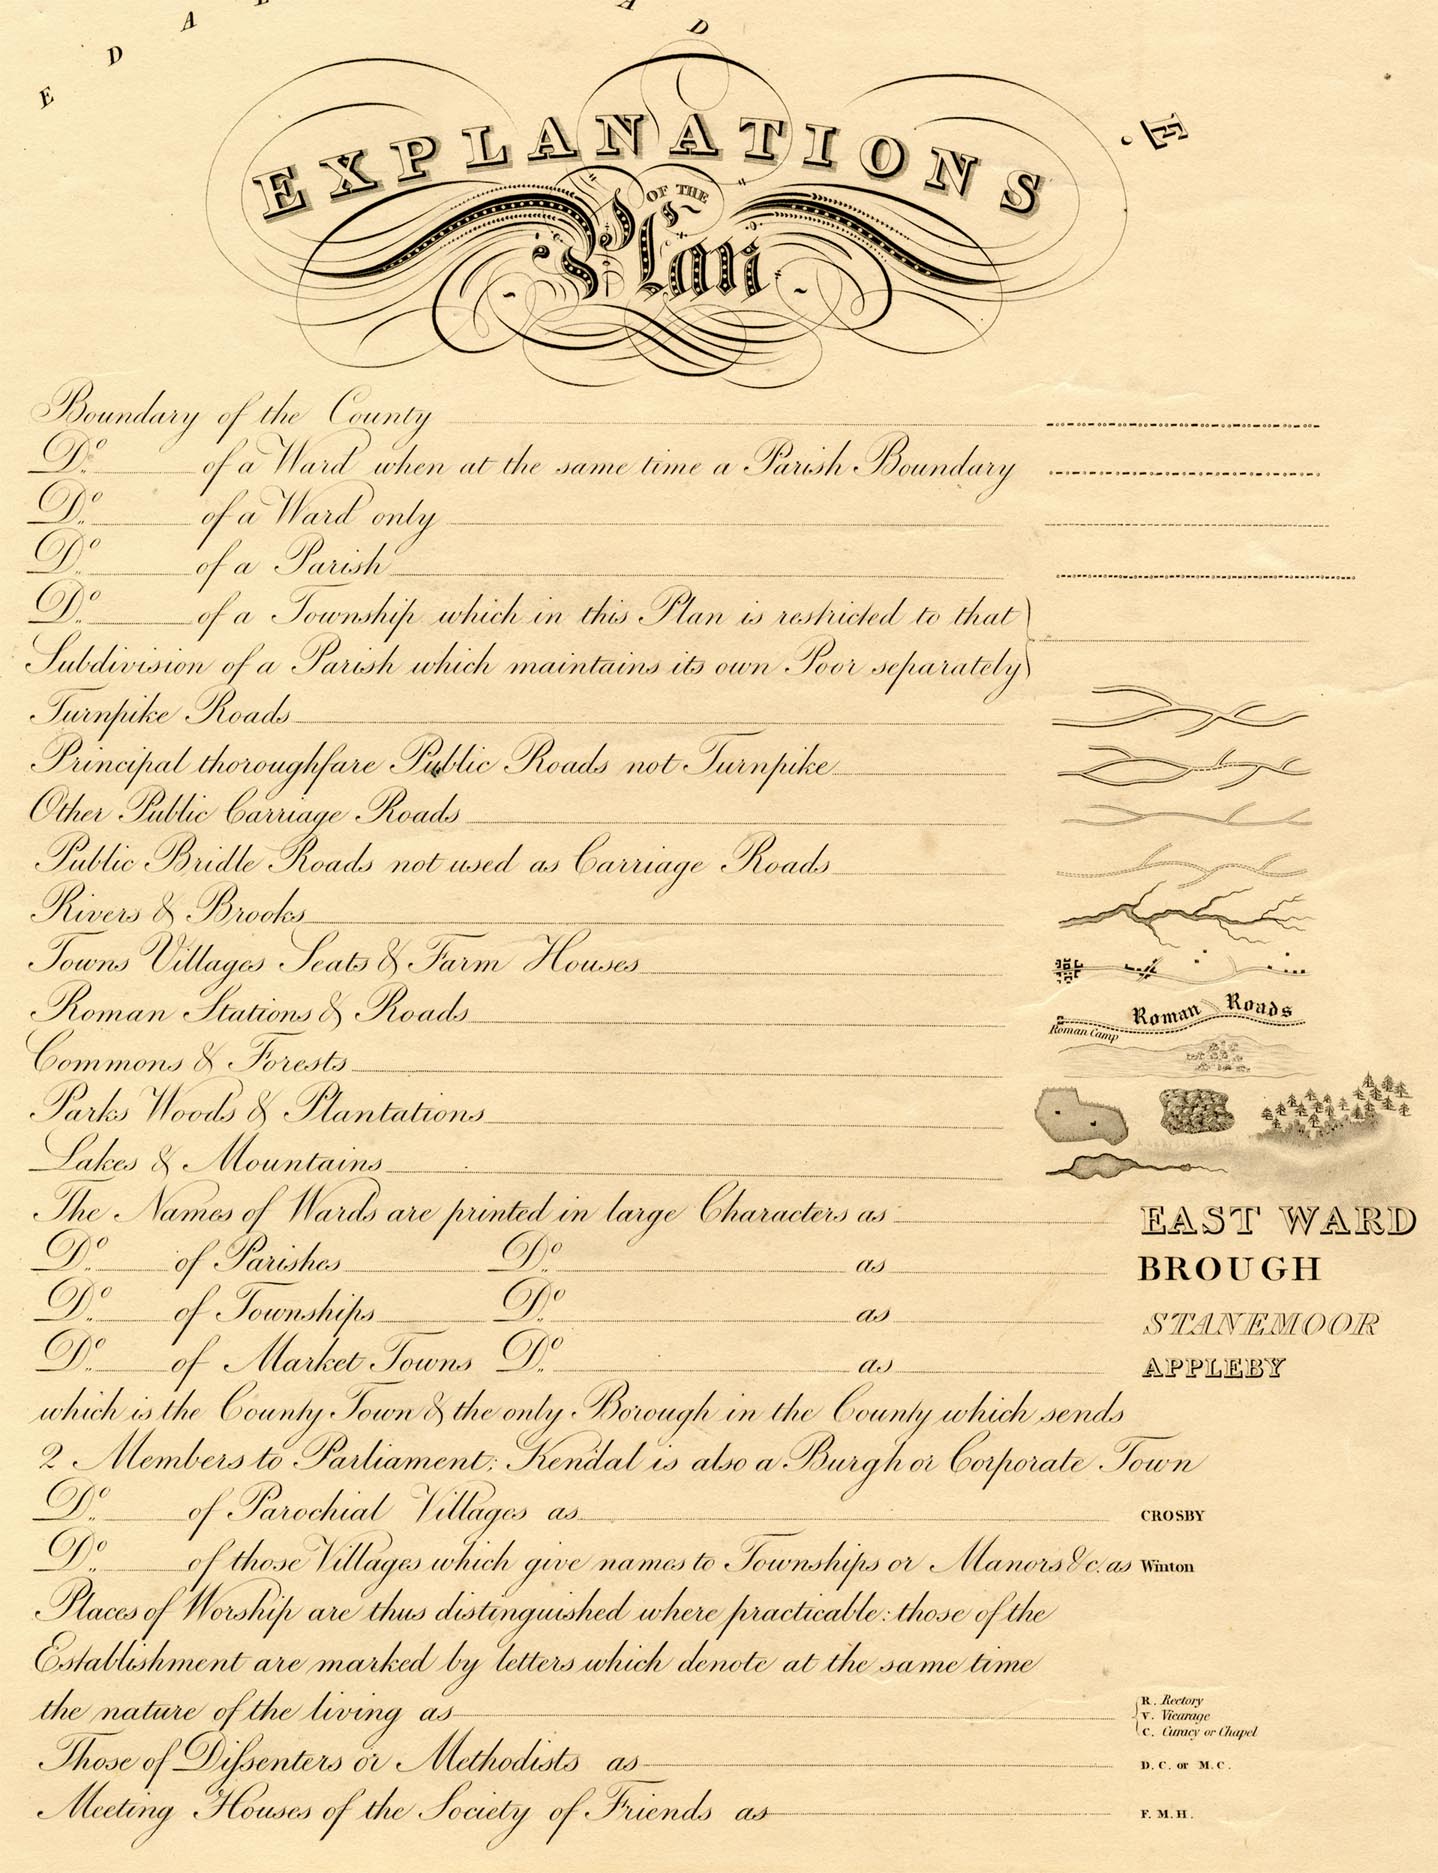 E D A L
A D
E
EXPLANATIONS
OF THE
Plan
Boundary of the County
Do. of a Ward when at the same time a Parish Boundary
Do. of a Ward only
Do. of a Parish
Do. of a Township which in this Plan is restricted to that
Subdivision of a Parish which maintains its own Poor separately
Turnpike Roads
Principal thoroughfare Public Roads not Turnpike
Other Public Carriage Roads
Public Bridle Roads not used as Carriage Roads
Rivers & Brooks
Towns Villages Seats & Farm Houses
Roman Stations & Roads Roman Camp Roman Roads
Commons & Forests
Parks Woods & Plantations
Lakes & Mountains
The Names of Wards are printed in large Characters as EAST WARD
Do. of Parishes Do. as BROUGH
Do. of Townships Do. as STANEMOOR
Do. of Market Towns Do. as APPLEBY
which is the County Town & the only Borough in the County which sends
2 Members to Parliament; Kendal is also a Burgh or Corporate Town
Do. of Parochial Villages as CROSBY
Do. of those Villages which give names to Townships or Manors &c. as Winton
Places of Worship are thus distinguished where practicable: those of the
Establishment are marked by letters which denote at the same time
the nature of the living as
R. Rectory
V. Vicarage
C. Curacy or Chapel
Those of Dissenters or Methodists as D.C. or M.C.
Meeting Houses of the Society of Friends as F.M.H.